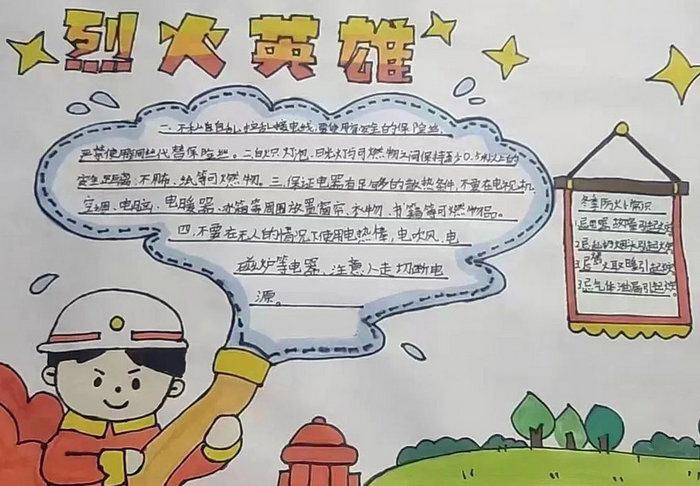 烈火英雄
一、不私自乱拉乱接电线,要使用安全的保险丝,
严禁使用铜丝代替保险丝。二、白炽灯泡、日光灯与可燃物之间保持至少0.5米以上的
安全距离,不用布、纸等可燃物。三、保证电器有足够的散热条件,不要在电视机、
空调、电脑、电暖器、冰箱等周围放置窗帘、衣物、书籍等可燃物品。
四、不要在无人的情况下使用电热锅、电吹风、电
磁炉等电器,注意人走切断电
源。
冬季防火小常识
引起火
2.忌 烟头引起火
3.忌 火取暖引起火
3.忌气体泄漏引起火